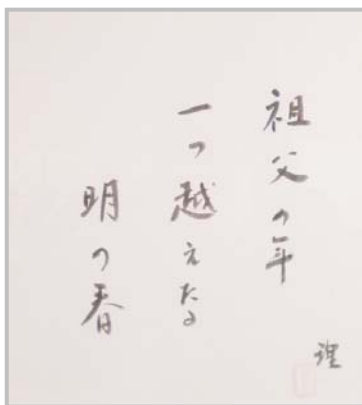 祖父の年
一つ越えたる
明の春